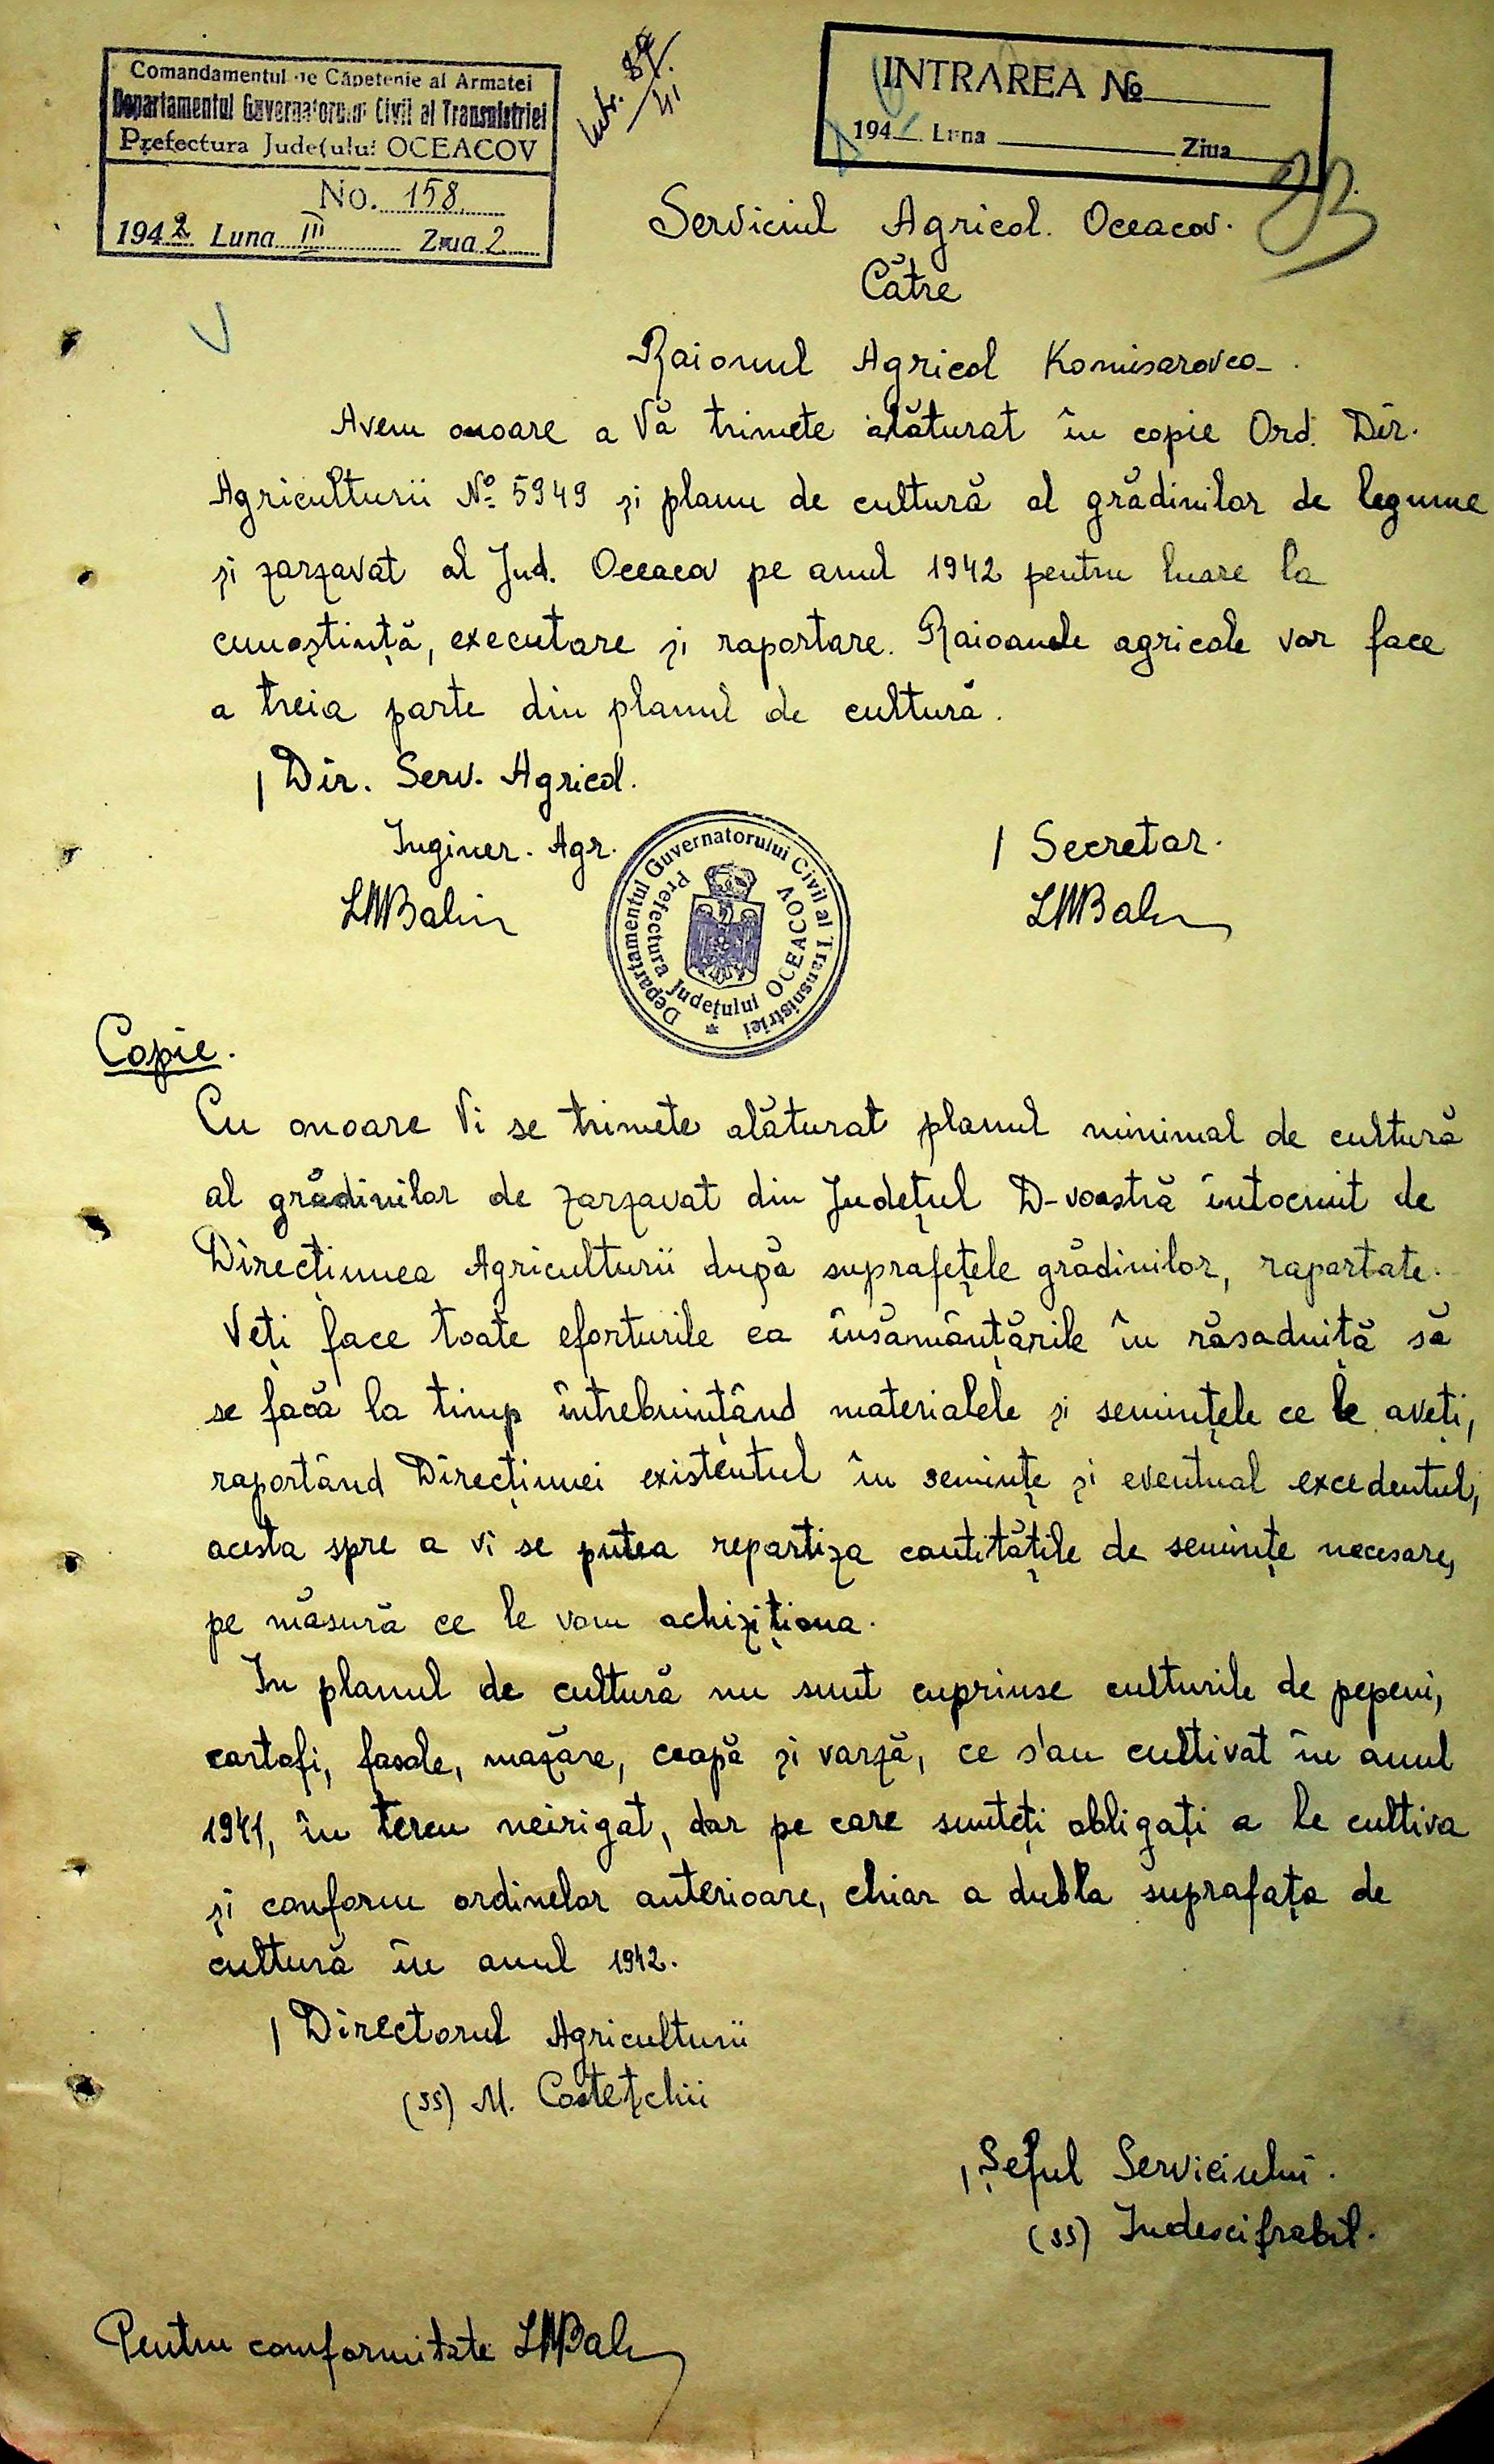 Comandamentul de Căpetenie al Armatei
Departamentul Guvernatorului Civil al Transnistriei
Prefectura Județului OCEACOV
No. 158
1942 Luna III Ziua 2
INTRAREA №
194 Luna Ziua
Serviciul Agricol. Oceacov.
Către
Raionul Agricol Komisarovca.
Avem onoare a Vă trimete alăturat în copie Ord. Dir.
Agriculturii № 5949 și planu de cultură al grădinilor de legume
și zarzavat al Jud. Oceacov pe anul 1942 pentru luare la
cunoștință, executare și raportare. Raioanele agricole vor face
a treia parte din planul de cultură.
/ Dir. Serv. Agricol.
Inginer. Agr.
/ Secretar.
Departamentul Guvernatorului Civil al Transnistriei
Prefectura Județului OCEACOV
Copie.
Cu onoare Vi se trimete alăturat planul minimal de cultură
al grădinilor de zarzavat din Județul D-voastră întocmit de
Direcțiunea Agriculturii după suprafețele grădinilor, raportate.
Veți face toate eforturile ca însămânțările în răsadniță să
se facă la timp întrebuințând materialele și semințele ce le aveți,
raportând Direcțiunei existentul în semințe și eventual excedentul,
acesta spre a vi se putea repartiza cantitățile de semințe necesare,
pe măsură ce le vom achiziționa.
In planul de cultură nu sunt cuprinse culturile de pepeni,
cartofi, fasole, mazăre, ceapă și varză, ce s'au cultivat în anul
1941, în teren neirigat, dar pe care sunteți obligați a le cultiva
și conform ordinelor anterioare, chiar a dubla suprafața de
cultură în anul 1942.
/ Directorul Agriculturii
(ss) M. Costețchii
/ Șeful Serviciului.
(ss) Indescifrabil.
Pentru conformitate